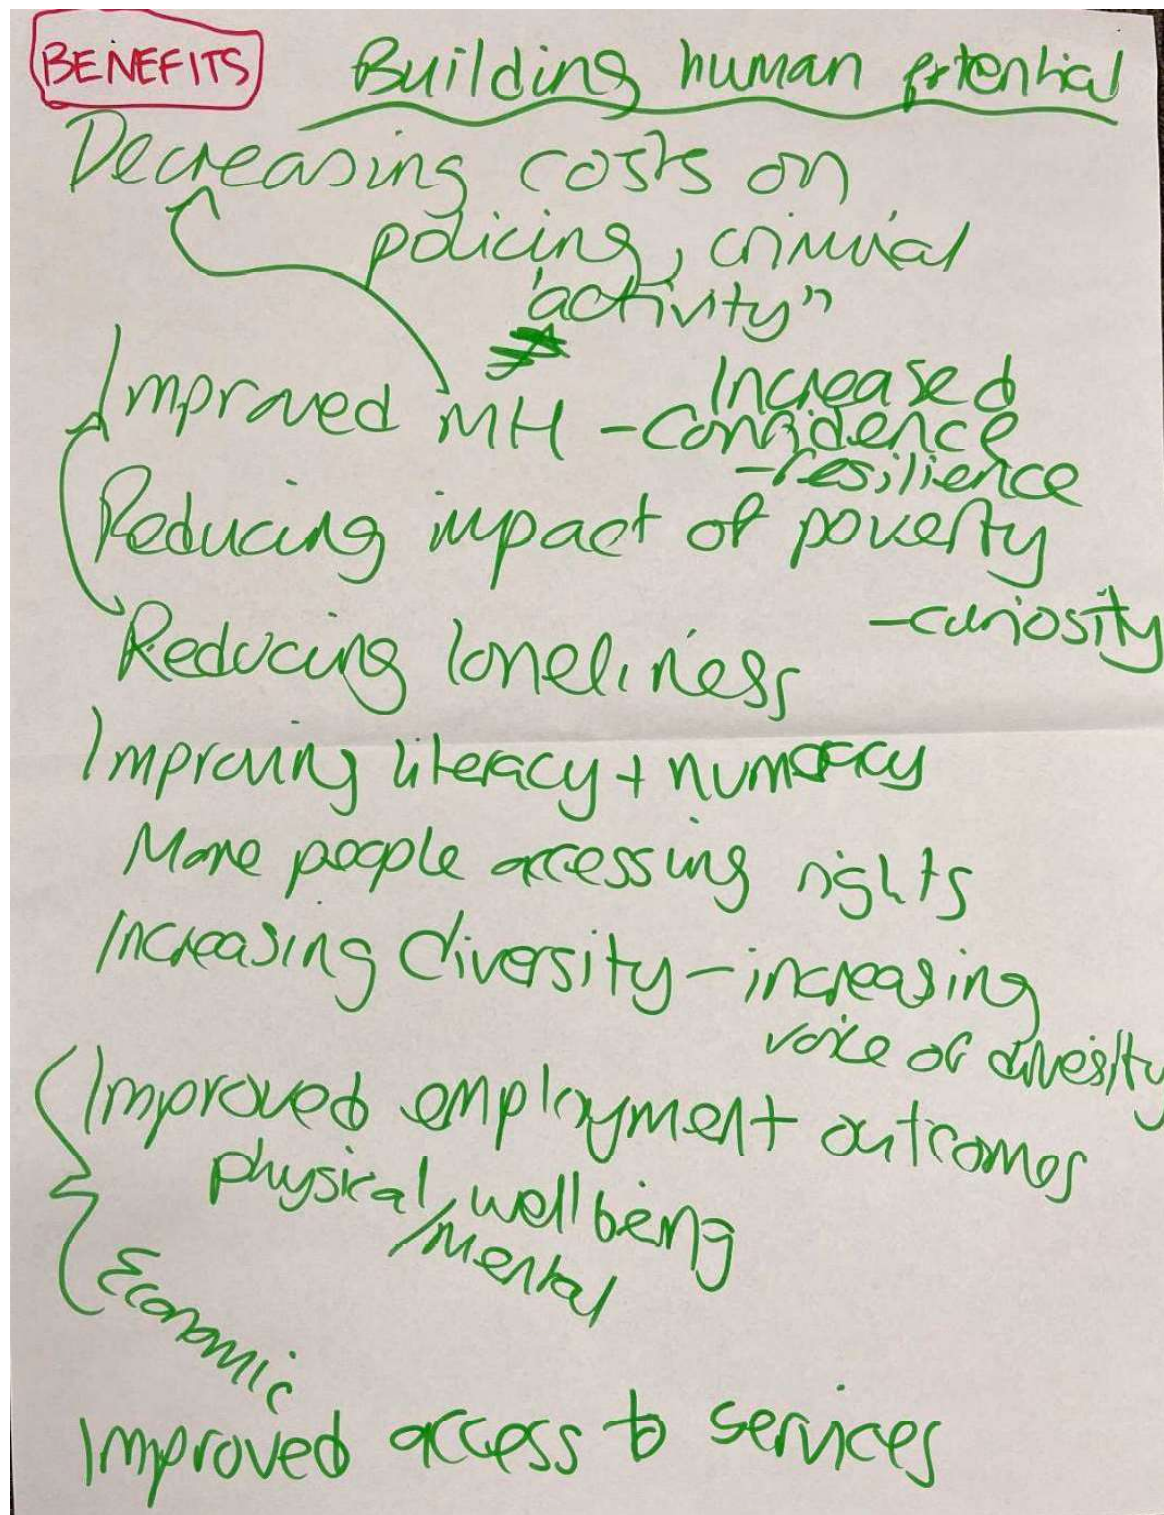 BENEFITS
Building human potential
Decreasing costs on
policing, criminal
"activity"
Increased
Improved MH - confidence
- resilience
Reducing impact of poverty
- curiosity
Reducing loneliness
Improving literacy + numeracy
More people accessing rights
Increasing diversity - increasing
voice of diversity
Improved employment outcomes
physical / wellbeing
mental
Economic
Improved access to services